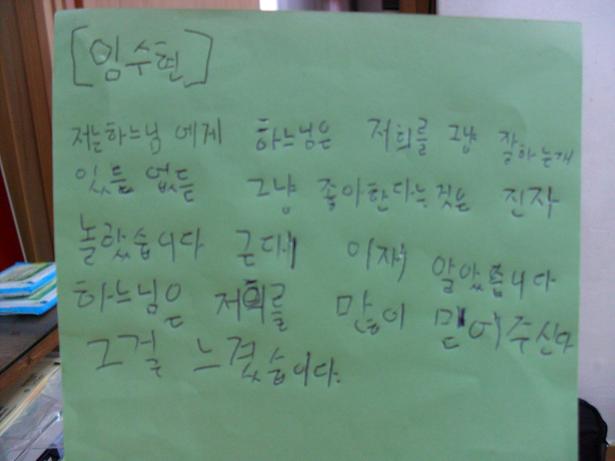 [임수현]
저는하느님 에게 하느님은 저희를 그냥 잘하는개
있든 없든 그냥 좋아한다는것은 진자
놀랐습니다 근대 이재 알았습니다
하느님은 저희를 많이 믿어주신다
그걸 느겼습니다.